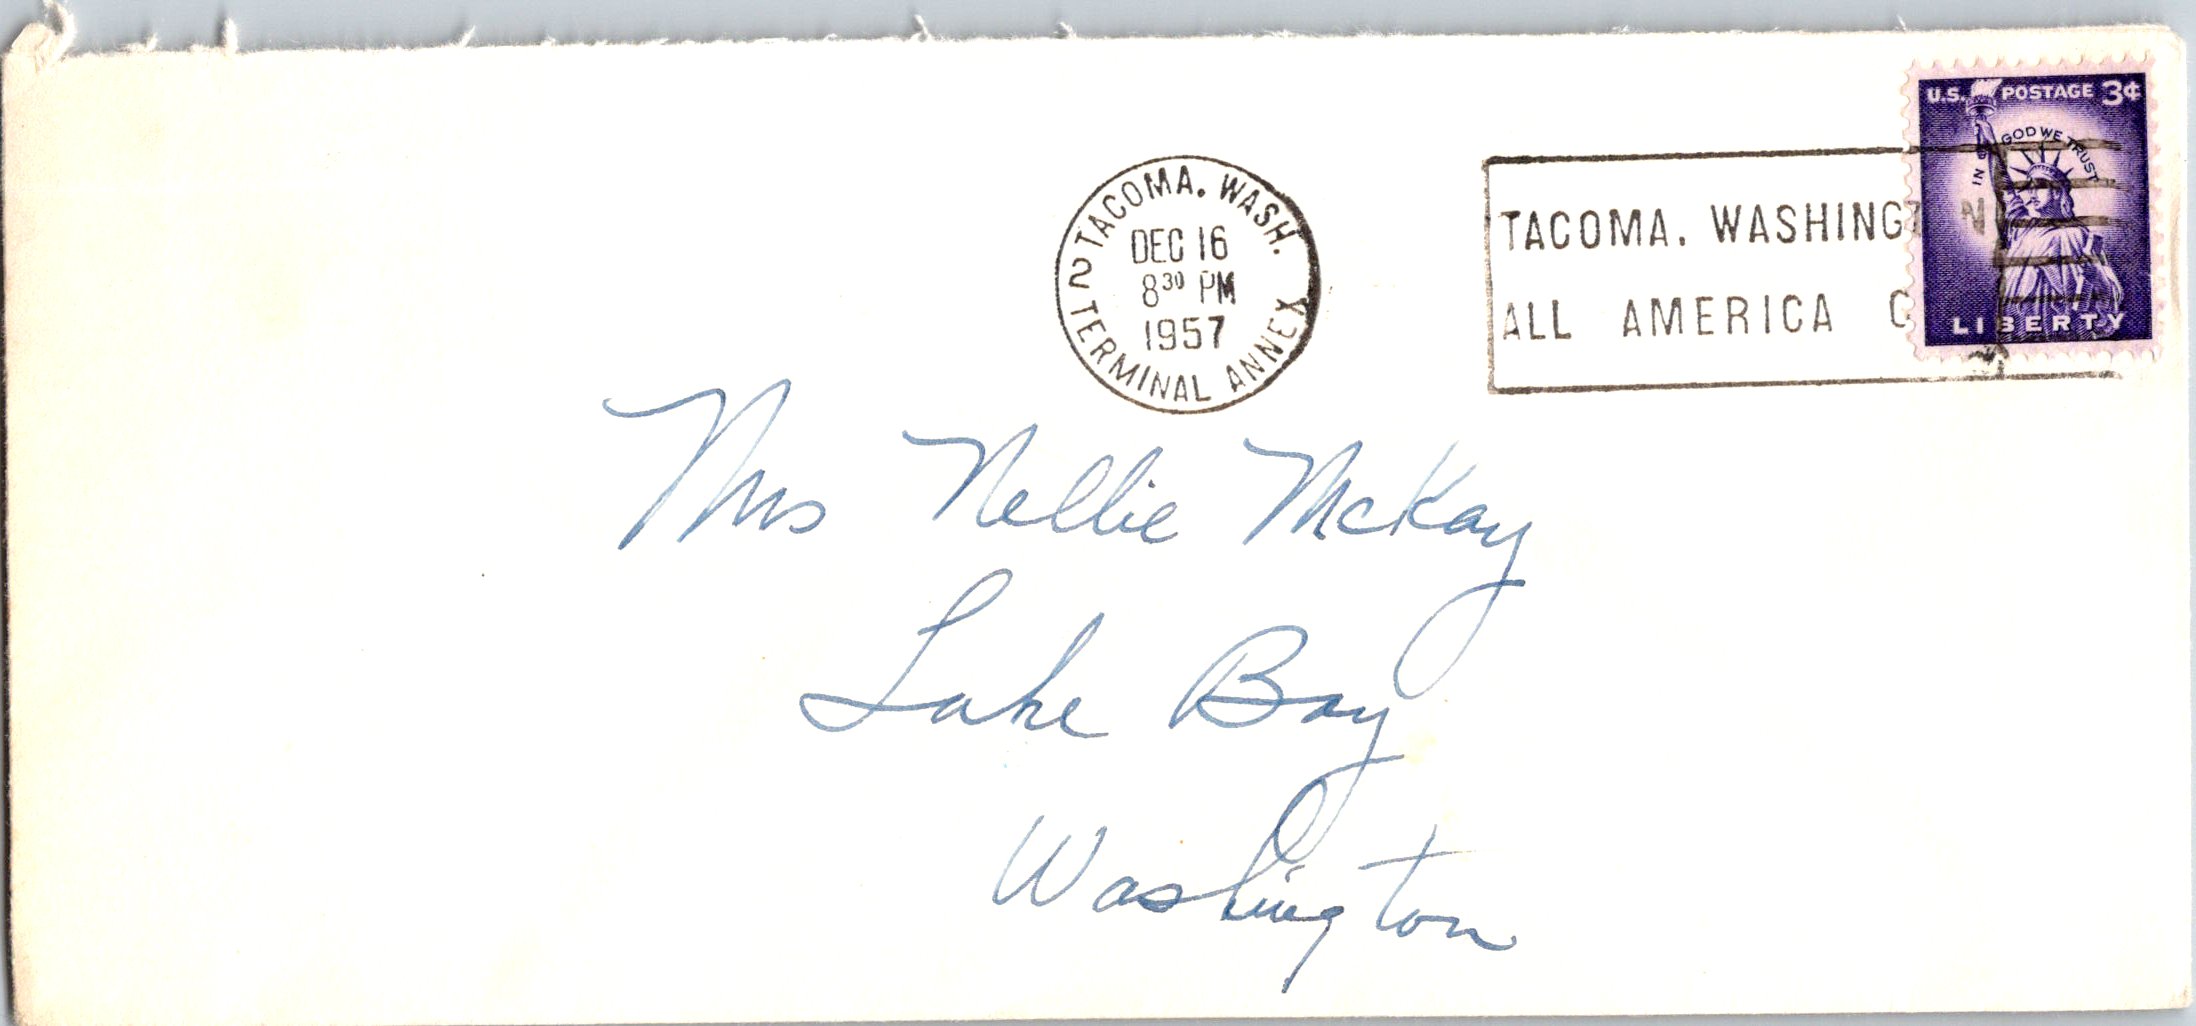 U.S. POSTAGE 3¢
IN GOD WE TRUST
LIBERTY
TACOMA, WASH.
DEC 16
8³⁰ PM
1957
2 TERMINAL ANNEX
TACOMA, WASHINGT N
ALL AMERICA C
Mrs Nellie McKay
Lake Bay
Washington